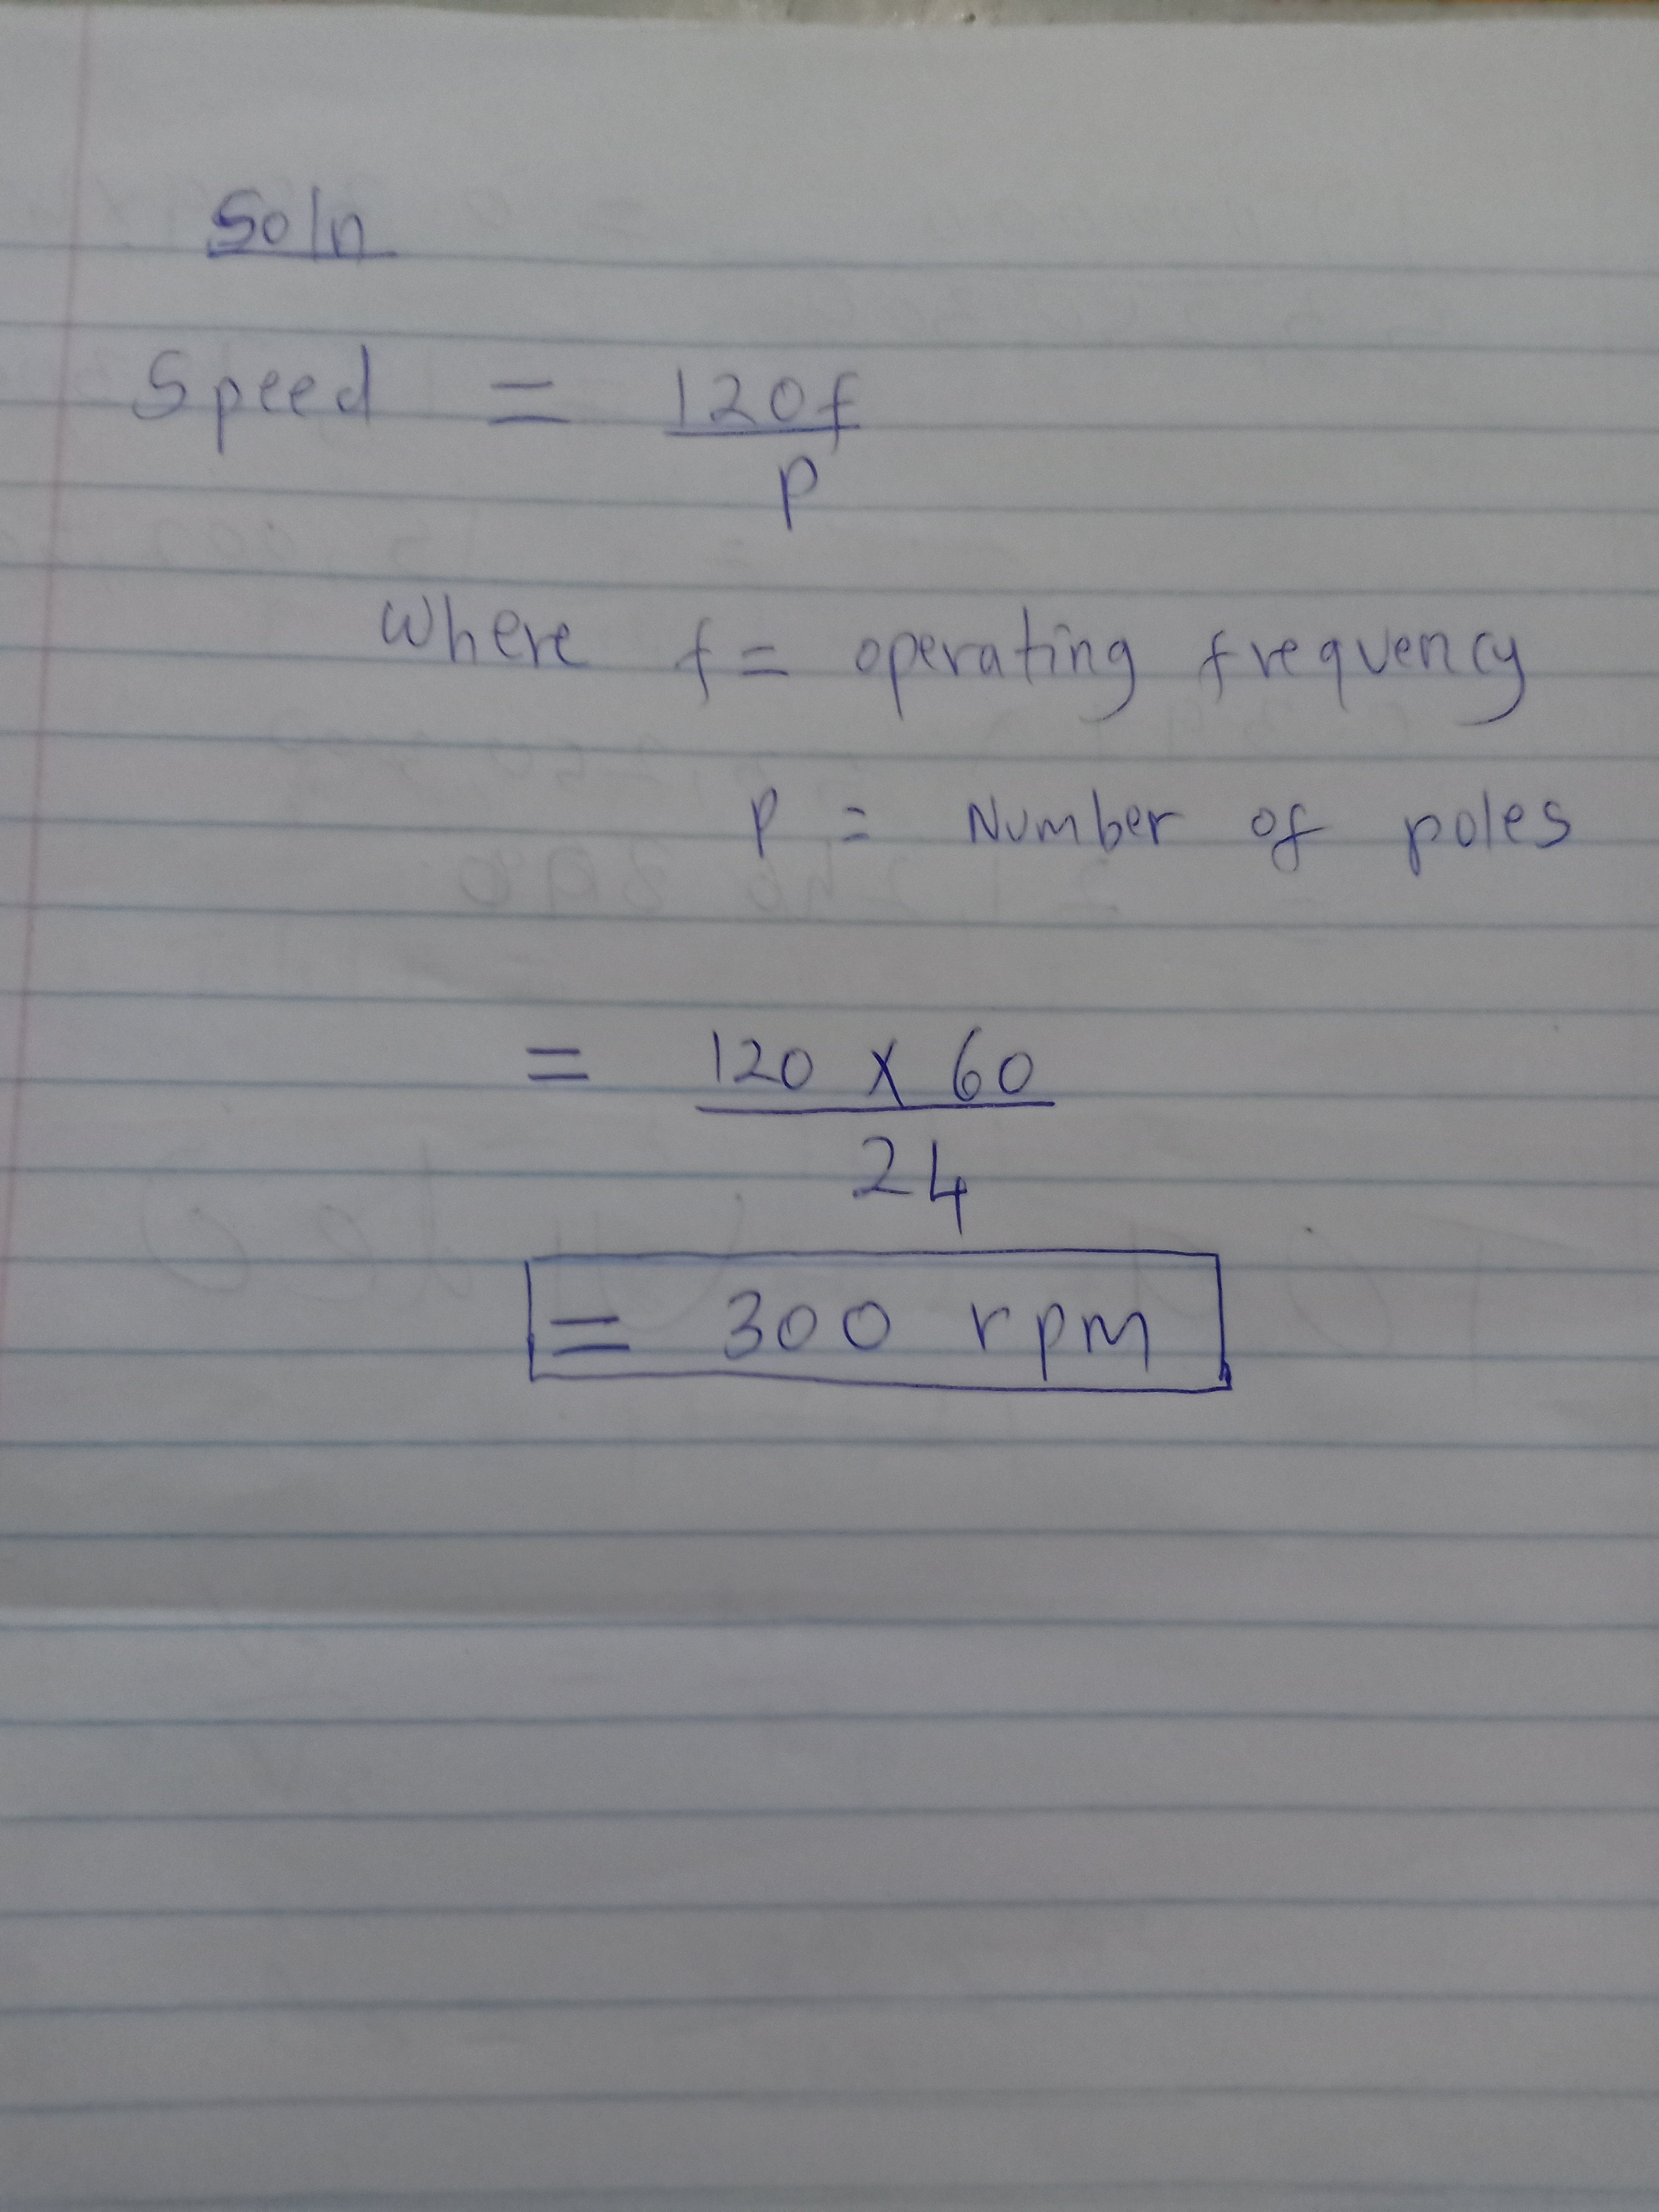 Soln
Speed = 120f
P
Where f = operating frequency
P = Number of poles
= 120 x 60
24
= 300 rpm